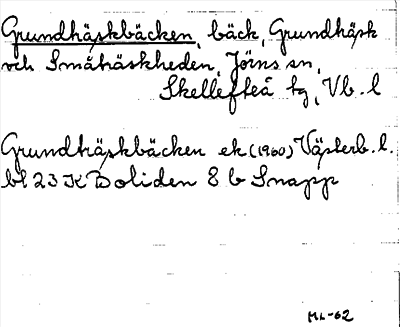 Grundhäskbäcken, bäck, Grundhäsk
och Småträskheden, Jörns sn,
Skellefteå tg, Vb. l
Grundträskbäcken ek (1960) Västerb. l.
bl 23 K Boliden 8 b Snapp
ML-62